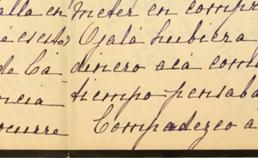 alla en meter en compr
á esets Ojalá hubiera
de Ca dinero acá com
ncia tiempo pensaba
ocurre Compadezco a